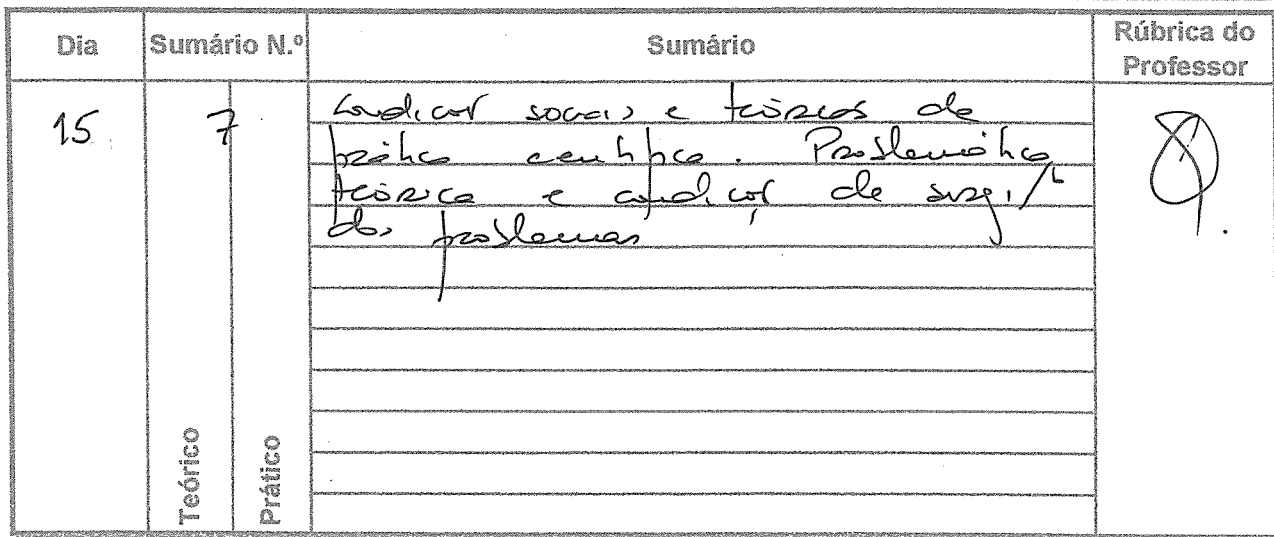 Dia Sumário N.º Sumário Rúbrica do Professor
15 7 Condições sociais e teóricas da
prática científica. Problemática
teórica e condições de surgi/
dos problemas
Teórico Prático